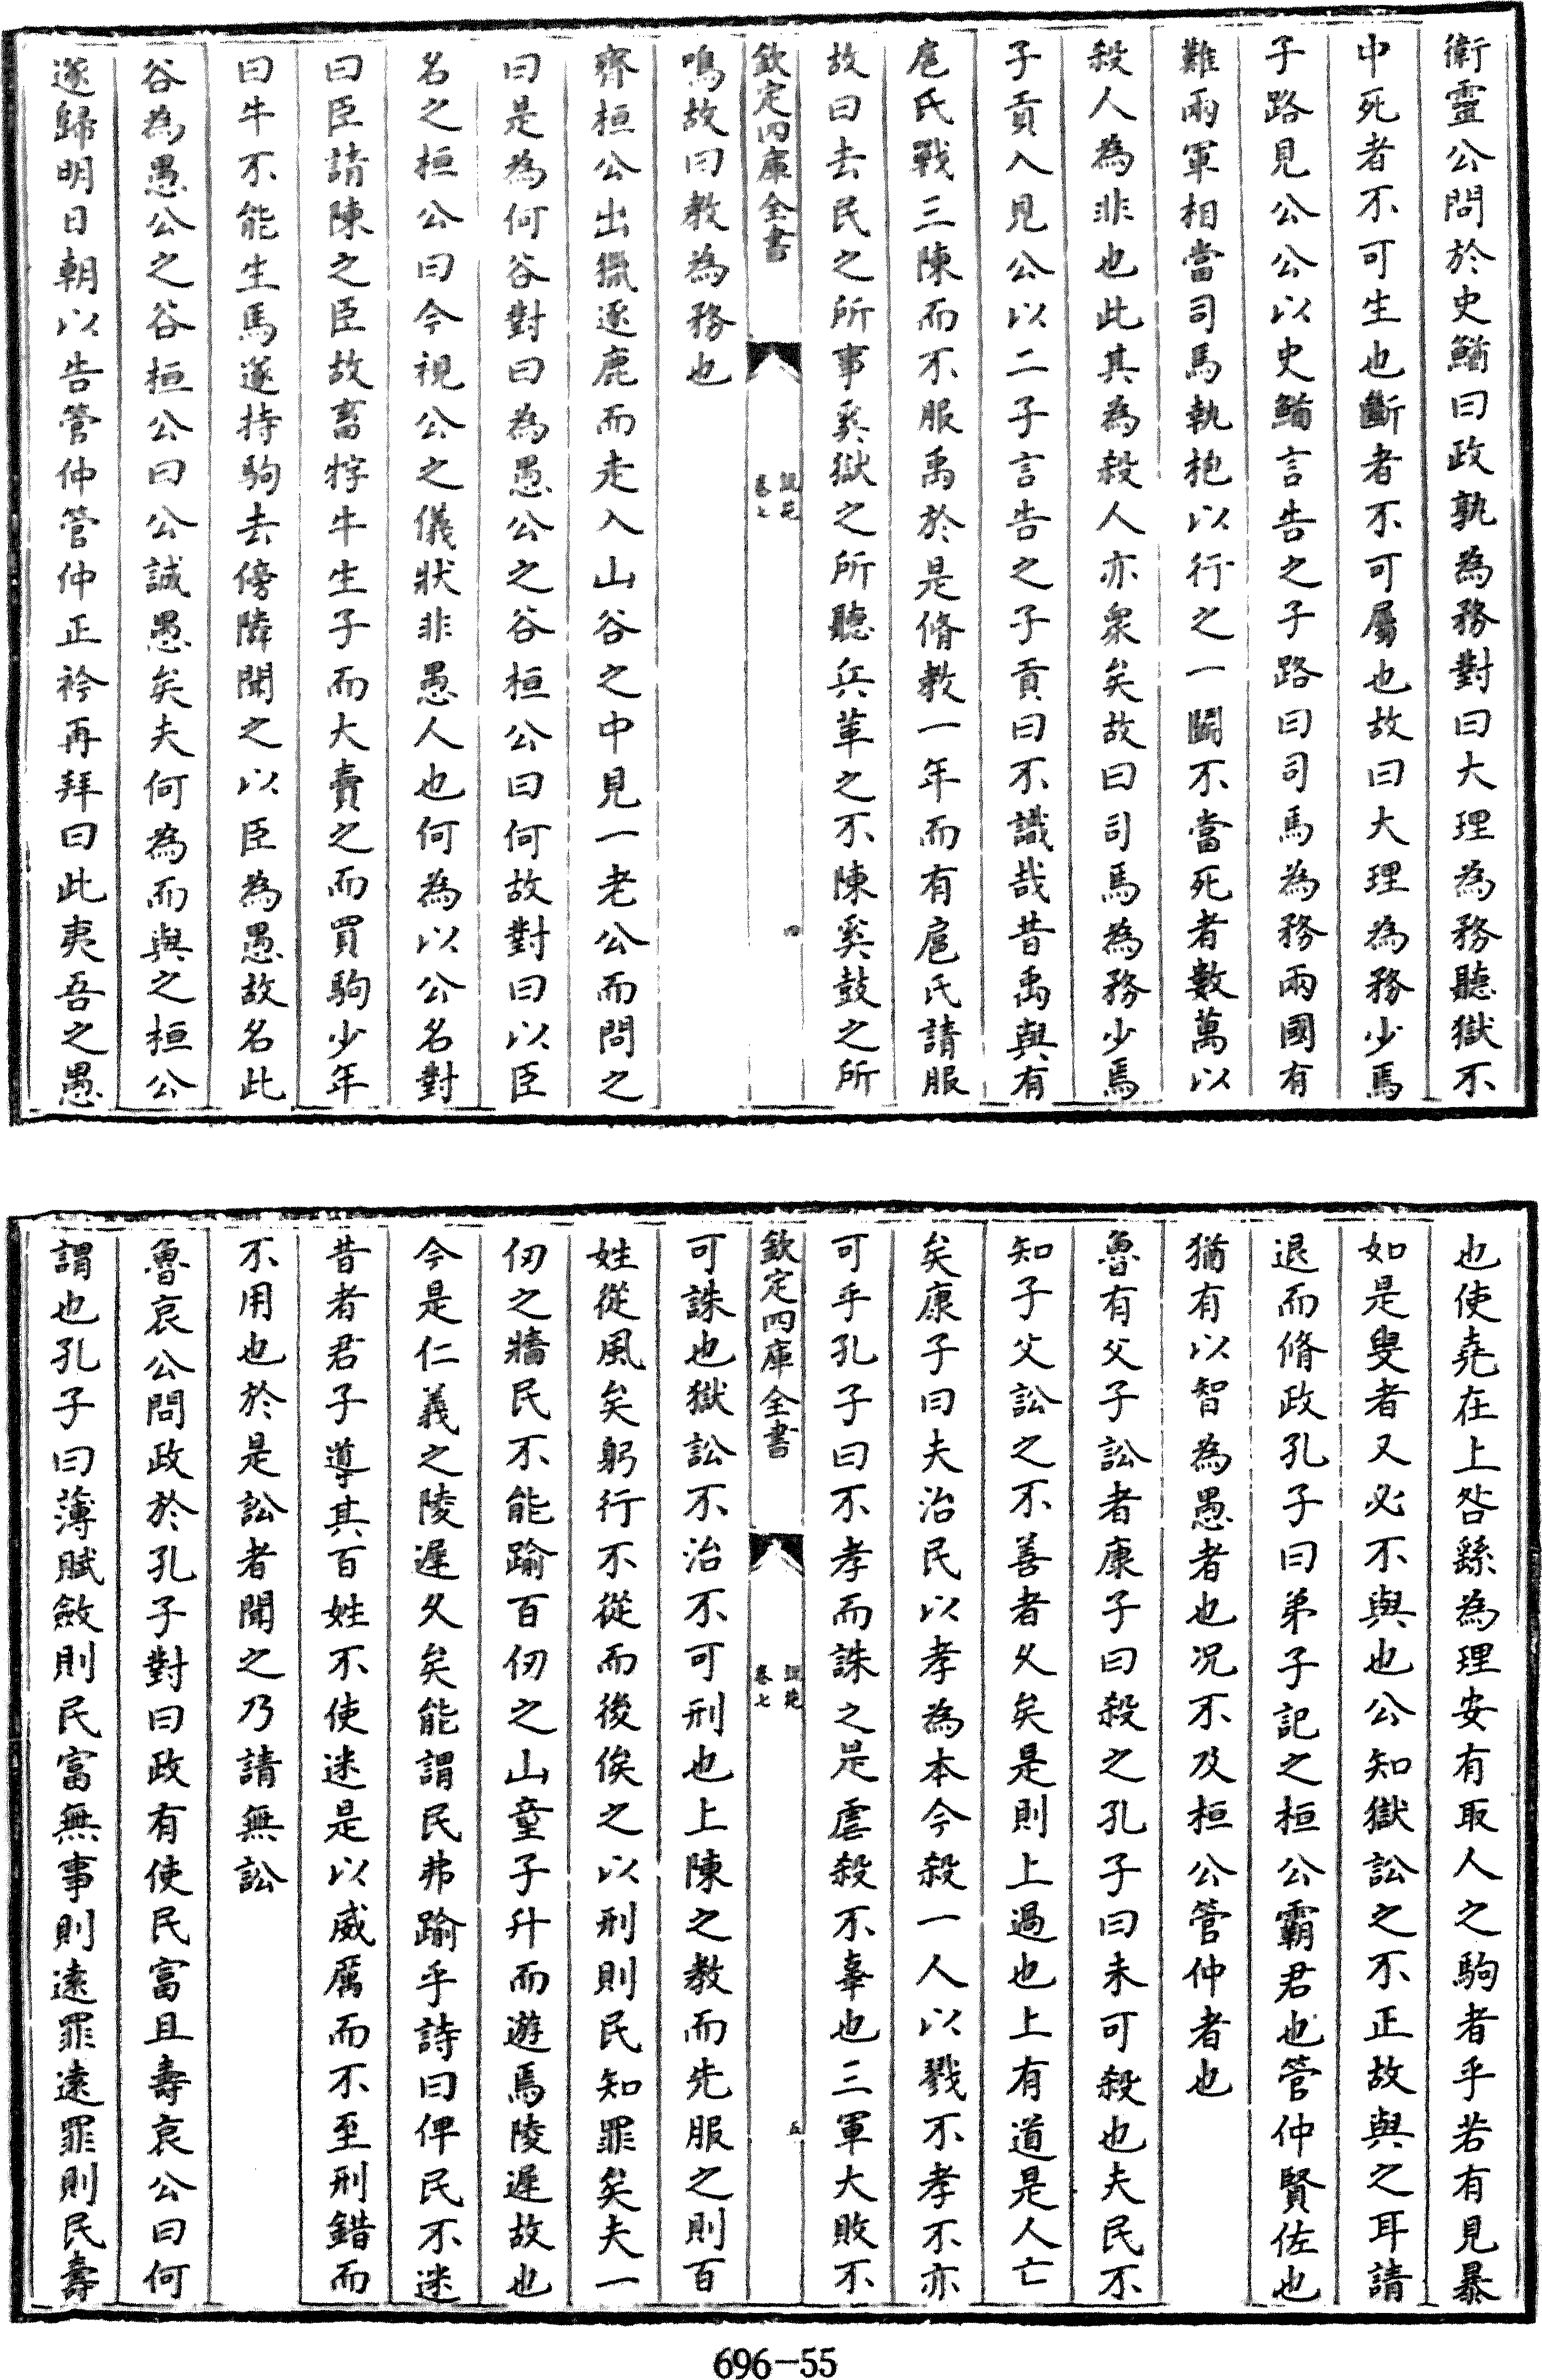 衛靈公問於史鰌曰政孰為務對曰大理為務聽獄不
中死者不可生也斷者不可屬也故曰大理為務少焉
子路見公公以史鰌言告之子路曰司馬為務兩國有
難兩軍相當司馬執枹以行之一鬭不當死者數萬以
殺人為非也此其為殺人亦衆矣故曰司馬為務少焉
子貢入見公以二子言告之子貢曰不識哉昔禹與有
扈氏戰三陳而不服禹於是脩教一年而有扈氏請服
故曰去民之所事奚獄之所聽兵革之不陳奚鼓之所
欽定四庫全書
說苑
卷七
四
鳴故曰教為務也
齊桓公出獵逐鹿而走入山谷之中見一老公而問之
曰是為何谷對曰為愚公之谷桓公曰何故對曰以臣
名之桓公曰今視公之儀狀非愚人也何為以公名對
曰臣請陳之臣故畜牸牛生子而大賣之而買駒少年
曰牛不能生馬遂持駒去傍隣聞之以臣為愚故名此
谷為愚公之谷桓公曰公誠愚矣夫何為而與之桓公
遂歸明日朝以告管仲管仲正衿再拜曰此夷吾之愚
也使堯在上咎繇為理安有取人之駒者乎若有見暴
如是叟者又必不與也公知獄訟之不正故與之耳請
退而脩政孔子曰弟子記之桓公霸君也管仲賢佐也
猶有以智為愚者也况不及桓公管仲者也
魯有父子訟者康子曰殺之孔子曰未可殺也夫民不
知子父訟之不善者久矣是則上過也上有道是人亡
矣康子曰夫治民以孝為本今殺一人以戮不孝不亦
可乎孔子曰不孝而誅之是虐殺不辜也三軍大敗不
欽定四庫全書
說苑
卷七
五
可誅也獄訟不治不可刑也上陳之教而先服之則百
姓從風矣躬行不從而後俟之以刑則民知罪矣夫一
仞之牆民不能踰百仞之山童子升而遊焉陵遲故也
今是仁義之陵遲久矣能謂民弗踰乎詩曰俾民不迷
昔者君子導其百姓不使迷是以威厲而不至刑錯而
不用也於是訟者聞之乃請無訟
魯哀公問政於孔子對曰政有使民富且壽哀公曰何
謂也孔子曰薄賦斂則民富無事則遠罪遠罪則民壽
696-55